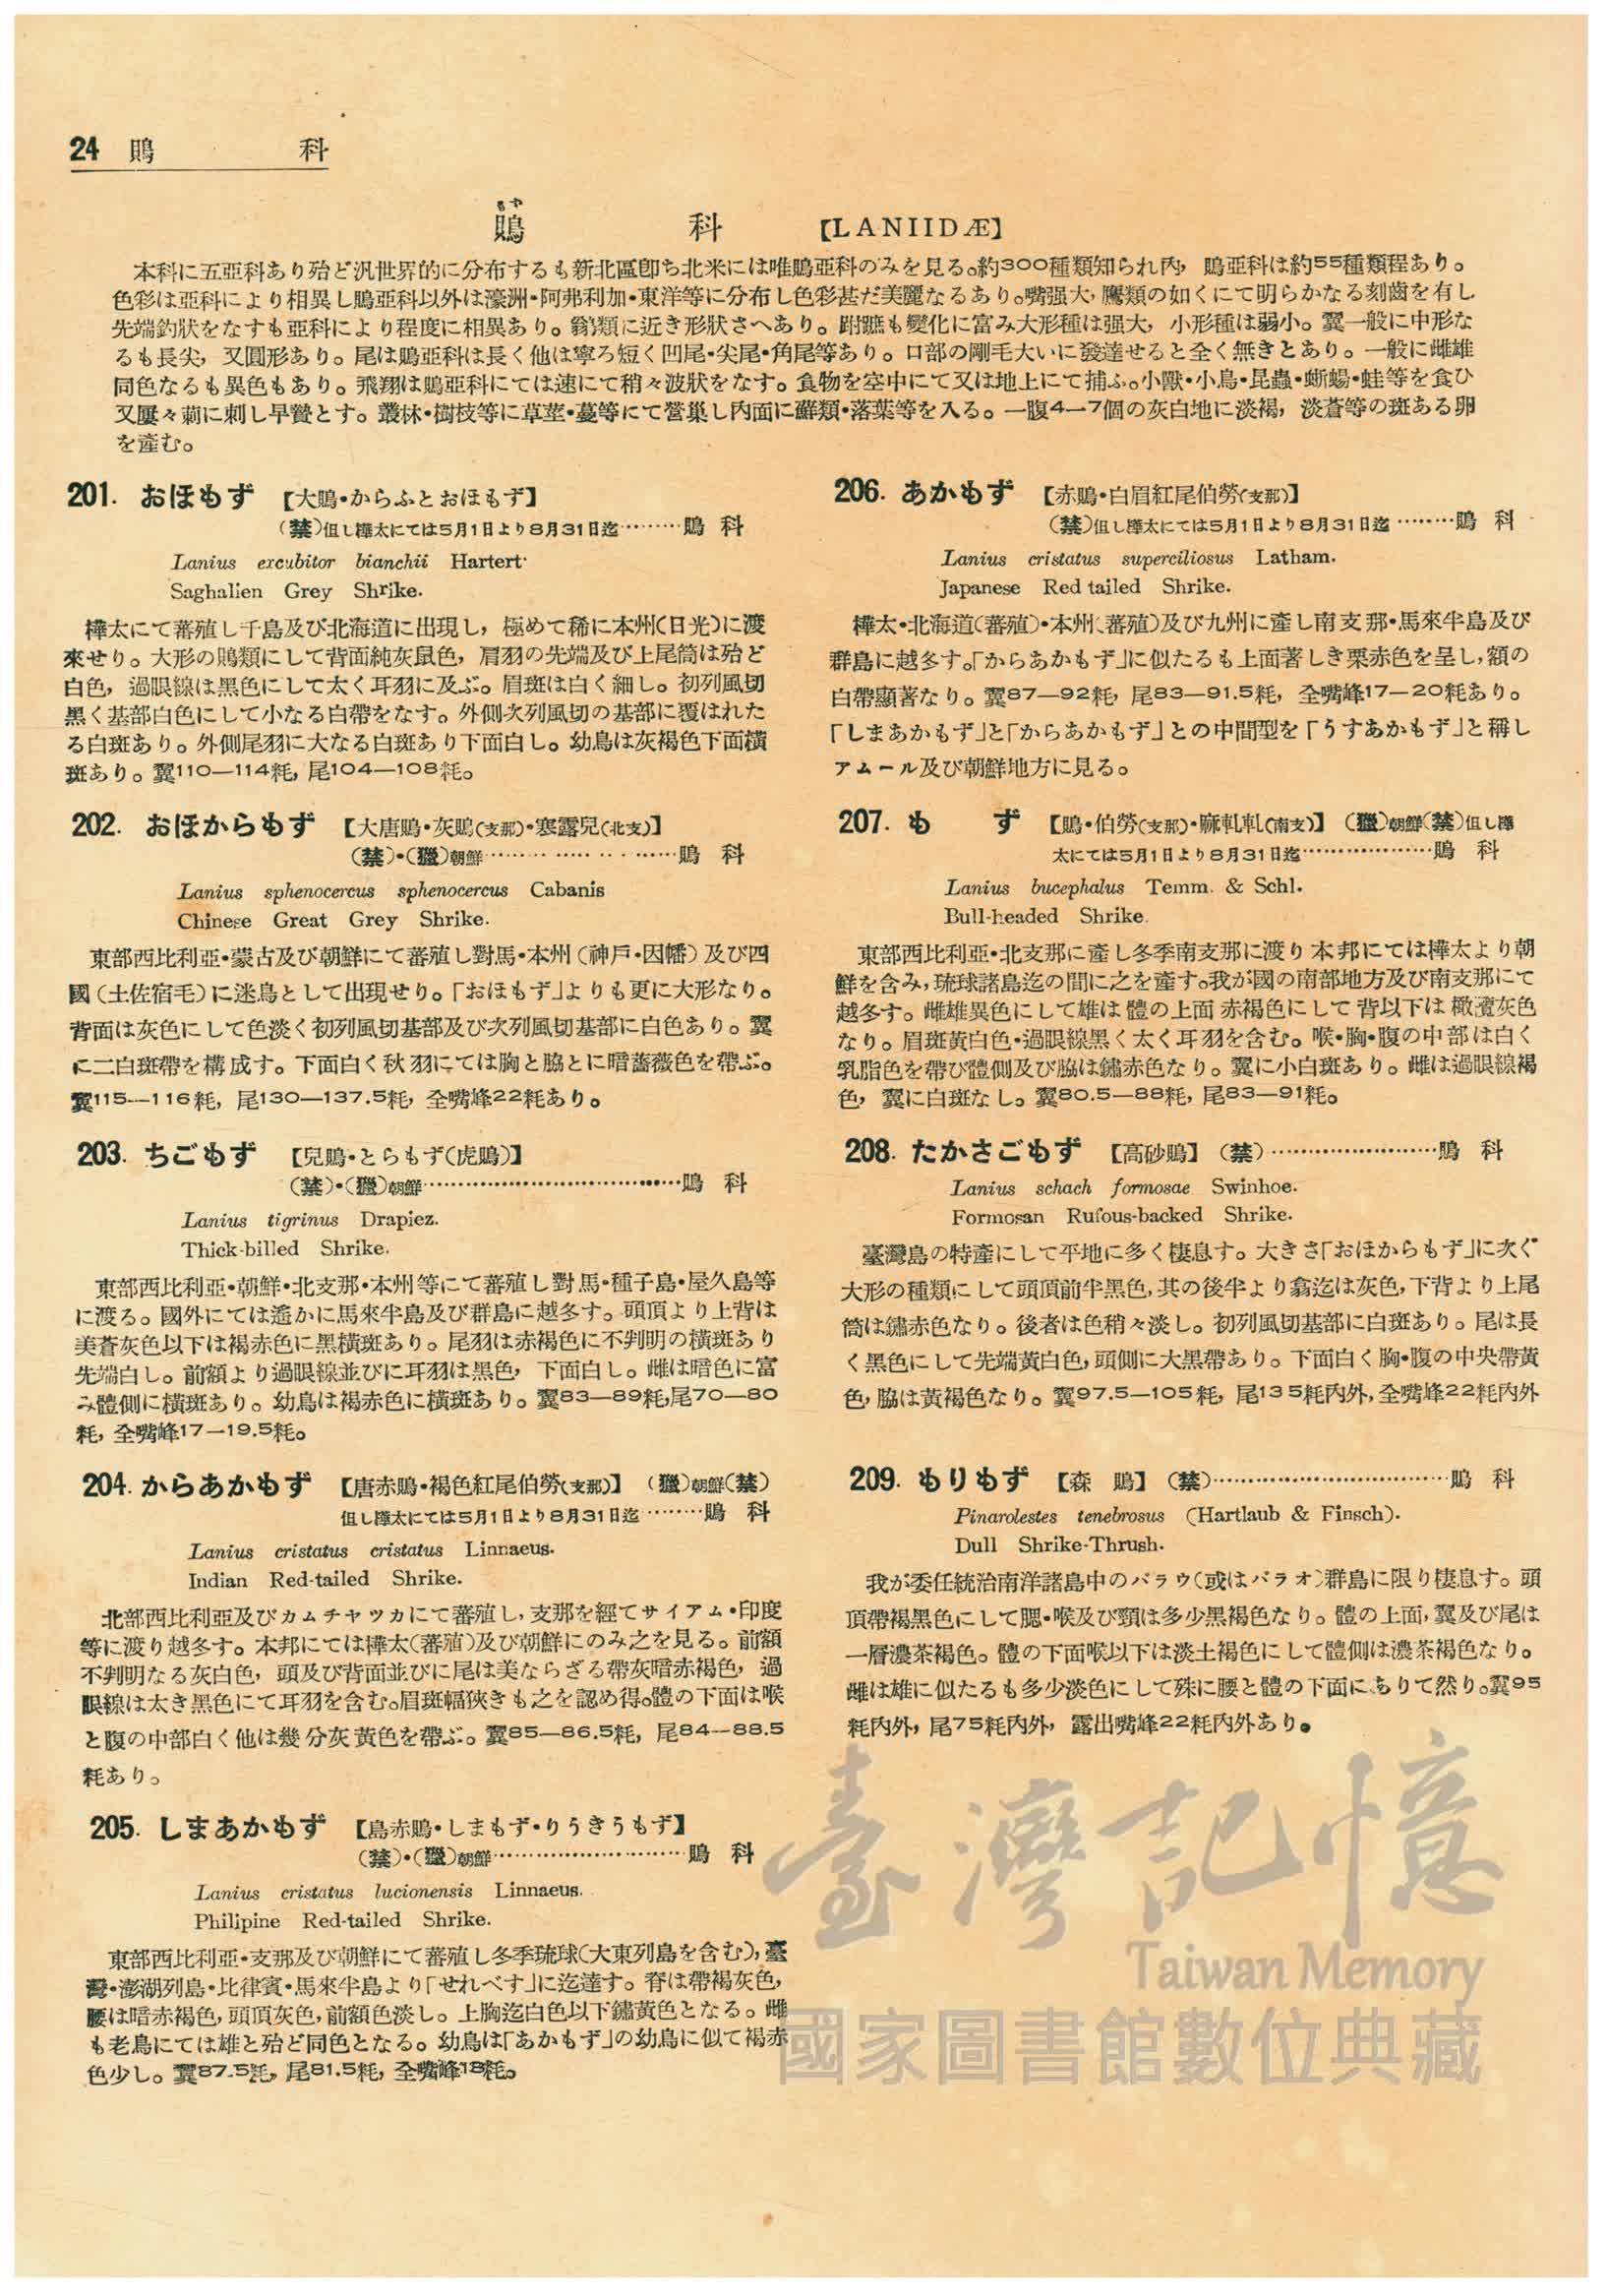 24 鵙 科
もず
鵙 科 【LANIIDÆ】
本科に五亞科あり殆ど汎世界的に分布するも新北區卽ち北米には唯鵙亞科のみを見る。約300種類知られ內, 鵙亞科は約55種類程あり。
色彩は亞科により相異し鵙亞科以外は濠洲・阿弗利加・東洋等に分布し色彩甚だ美麗なるあり。嘴强大, 鷹類の如くにて明らかなる刻齒を有し
先端釣狀をなすも亞科により程度に相異あり。鶲類に近き形狀さへあり。跗蹠も變化に富み大形種は强大, 小形種は弱小。翼一般に中形な
るも長尖, 又圓形あり。尾は鵙亞科は長く他は寧ろ短く凹尾・尖尾・角尾等あり。口部の剛毛大いに發達せると全く無きとあり。一般に雌雄
同色なるも異色もあり。飛翔は鵙亞科にては速にて稍々波狀をなす。食物を空中にて又は地上にて捕ふ。小獸・小鳥・昆蟲・蜥蜴・蛙等を食ひ
又屢々莿に刺し早贄とす。叢林・樹枝等に草莖・蔓等にて營巢し內面に蘚類・落葉等を入る。一腹4—7個の灰白地に淡褐, 淡蒼等の斑ある卵
を產む。
201. おほもず 【大鵙・からふとおほもず】
(禁)但し樺太にては5月1日より8月31日迄………鵙 科
Lanius excubitor bianchii Hartert
Saghalien Grey Shrike.
樺太にて蕃殖し千島及び北海道に出現し, 極めて稀に本州(日光)に渡
來せり。大形の鵙類にして背面純灰鼠色, 肩羽の先端及び上尾筒は殆ど
白色, 過眼線は黑色にして太く耳羽に及ぶ。眉斑は白く細し。初列風切
黑く基部白色にして小なる白帶をなす。外側次列風切の基部に覆はれた
る白斑あり。外側尾羽に大なる白斑あり下面白し。幼鳥は灰褐色下面橫
斑あり。翼110—114粍, 尾104—108粍。
202. おほからもず 【大唐鵙・灰鵙(支那)・寒露兒(北支)】
(禁)・(獵)朝鮮………………………鵙 科
Lanius sphenocercus sphenocercus Cabanis
Chinese Great Grey Shrike.
東部西比利亞・蒙古及び朝鮮にて蕃殖し對馬・本州(神戶・因幡)及び四
國(土佐宿毛)に迷鳥として出現せり。「おほもず」よりも更に大形なり。
背面は灰色にして色淡く初列風切基部及び次列風切基部に白色あり。翼
に二白斑帶を構成す。下面白く秋羽にては胸と脇とに暗薔薇色を帶ぶ。
翼115—116粍, 尾130—137.5粍, 全嘴峰22粍あり。
203. ちごもず 【兒鵙・とらもず(虎鵙)】
(禁)・(獵)朝鮮………………………………鵙 科
Lanius tigrinus Drapiez.
Thick-billed Shrike.
東部西比利亞・朝鮮・北支那・本州等にて蕃殖し對馬・種子島・屋久島等
に渡る。國外にては遙かに馬來半島及び群島に越冬す。頭頂より上背は
美蒼灰色以下は褐赤色に黑橫斑あり。尾羽は赤褐色に不判明の橫斑あり
先端白し。前額より過眼線並びに耳羽は黑色, 下面白し。雌は暗色に富
み體側に橫斑あり。幼鳥は褐赤色に橫斑あり。翼83—89粍,尾70—80
粍, 全嘴峰17—19.5粍。
204. からあかもず 【唐赤鵙・褐色紅尾伯勞(支那)】 (獵)朝鮮(禁)
但し樺太にては5月1日より8月31日迄………鵙 科
Lanius cristatus cristatus Linnaeus.
Indian Red-tailed Shrike.
北部西比利亞及びカムチヤツカにて蕃殖し,支那を經てサイアム・印度
等に渡り越冬す。本邦にては樺太(蕃殖)及び朝鮮にのみ之を見る。前額
不判明なる灰白色, 頭及び背面並びに尾は美ならざる帶灰暗赤褐色, 過
眼線は太き黑色にて耳羽を含む。眉斑幅狹きも之を認め得。體の下面は喉
と腹の中部白く他は幾分灰黃色を帶ぶ。翼85—86.5粍, 尾84—88.5
粍あり。
205. しまあかもず 【島赤鵙・しまもず・りうきうもず】
(禁)・(獵)朝鮮………………………鵙 科
Lanius cristatus lucionensis Linnaeus.
Philipine Red-tailed Shrike.
東部西比利亞・支那及び朝鮮にて蕃殖し冬季琉球(大東列島を含む),臺
灣・澎湖列島・比律賓・馬來半島より「せれべす」に迄達す。脊は帶褐灰色,
腰は暗赤褐色,頭頂灰色,前額色淡し。上胸迄白色以下鏽黃色となる。雌
も老鳥にては雄と殆ど同色となる。幼鳥は「あかもず」の幼鳥に似て褐赤
色少し。翼87.5粍, 尾81.5粍, 全嘴峰18粍。
206. あかもず 【赤鵙・白眉紅尾伯勞(支那)】
(禁)但し樺太にては5月1日より8月31日迄………鵙 科
Lanius cristatus superciliosus Latham.
Japanese Red tailed Shrike.
樺太・北海道(蕃殖)・本州(蕃殖)及び九州に產し南支那・馬來半島及び
群島に越冬す。「からあかもず」に似たるも上面著しき栗赤色を呈し,額の
白帶顯著なり。翼87—92粍, 尾83—91.5粍, 全嘴峰17—20粍あり。
「しまあかもず」と「からあかもず」との中間型を「うすあかもず」と稱し
アムール及び朝鮮地方に見る。
207. も ず 【鵙・伯勞(支那)・麻軋軋(南支)】 (獵)朝鮮(禁)但し樺
太にては5月1日より8月31日迄………………鵙 科
Lanius bucephalus Temm. & Schl.
Bull-headed Shrike.
東部西比利亞・北支那に產し冬季南支那に渡り本邦にては樺太より朝
鮮を含み,琉球諸島迄の間に之を產す。我が國の南部地方及び南支那にて
越冬す。雌雄異色にして雄は體の上面赤褐色にして背以下は橄欖灰色
なり。眉斑黃白色・過眼線黑く太く耳羽を含む。喉・胸・腹の中部は白く
乳脂色を帶び體側及び脇は鏽赤色なり。翼に小白斑あり。雌は過眼線褐
色, 翼に白斑なし。翼80.5—88粍, 尾83—91粍。
208. たかさごもず 【高砂鵙】 (禁)……………………鵙 科
Lanius schach formosae Swinhoe.
Formosan Rufous-backed Shrike.
臺灣島の特產にして平地に多く棲息す。大きさ「おほからもず」に次ぐ
大形の種類にして頭頂前半黑色,其の後半より翕迄は灰色,下背より上尾
筒は鏽赤色なり。後者は色稍々淡し。初列風切基部に白斑あり。尾は長
く黑色にして先端黃白色,頭側に大黑帶あり。下面白く胸・腹の中央帶黃
色,脇は黃褐色なり。翼97.5—105粍, 尾135粍內外,全嘴峰22粍內外
209. もりもず 【森 鵙】 (禁)……………………………鵙 科
Pinarolestes tenebrosus (Hartlaub & Finsch).
Dull Shrike-Thrush.
我が委任統治南洋諸島中のパラウ(或はパラオ)群島に限り棲息す。頭
頂帶褐黑色にして腮・喉及び頸は多少黑褐色なり。體の上面,翼及び尾は
一層濃茶褐色。體の下面喉以下は淡土褐色にして體側は濃茶褐色なり。
雌は雄に似たるも多少淡色にして殊に腰と體の下面にありて然り。翼95
粍內外, 尾75粍內外, 露出嘴峰22粍內外あり。
臺灣記憶
Taiwan Memory
國家圖書館數位典藏